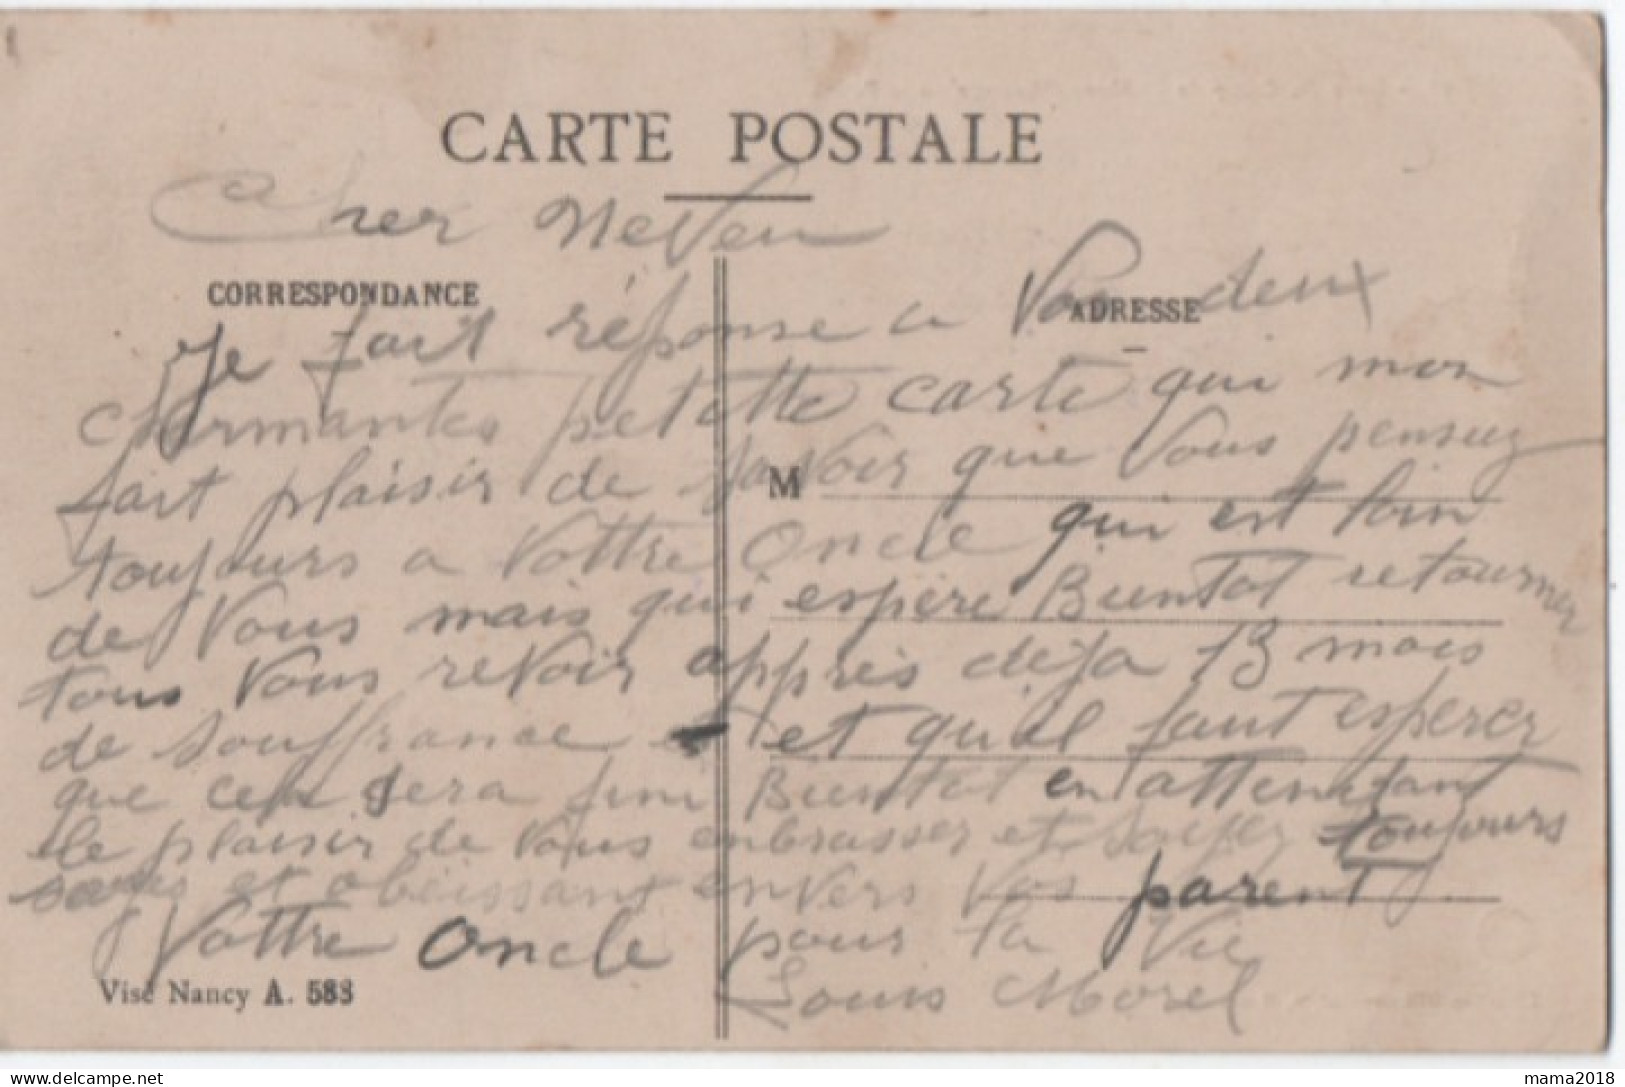 CARTE POSTALE
Cher Neveu
CORRESPONDANCE
ADRESSE
Je fait réponse a Vos deux
charmantes petitte carte qui mon
fait plaisir de savoir que Vous pensuez
M
toujours a Vottre Oncle qui est loin
de Vous mais qui espère Bientot retourner
tous Vous revoir apprès deja 13 mois
de souffrance et qu'il faut esperer
que cela sera fini Bientot en attendant
le plaisir de Vous enbrasser et soyez toujours
sages et obeissant envers Vos parent
Vottre Oncle pour la Vie
Louis Morel
Visé Nancy A. 588
www.delcampe.net
mama2018